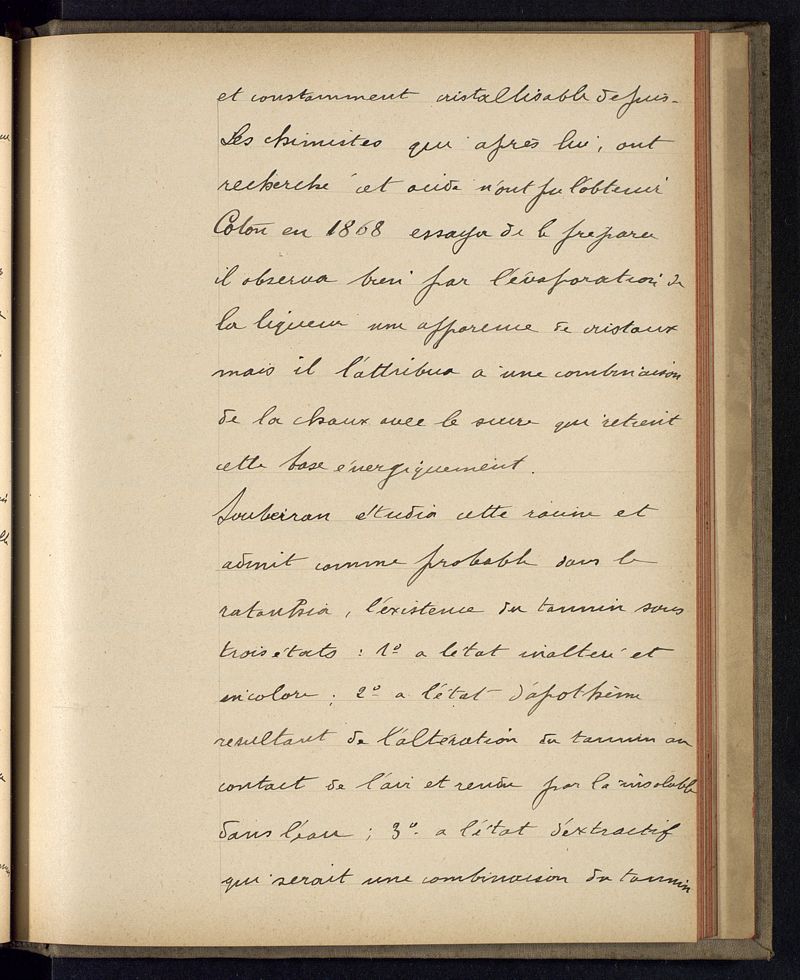 et constamment cristallisable depuis.
Les chimistes qui après lui, ont
recherché cet acide n'ont pu l'obtenir
Coton en 1868 essaya de le préparer
il observa bien par l'évaporation de
la liqueur une apparence de cristaux
mais il l'attribua a une combinaison
de la chaux avec le sucre qui retient
cette base énergiquement.
Soubeiran étudia cette racine et
admit comme probable dans le
ratanhia, l'éxistence du tannin sous
trois états : 1º a l'état inalteré et
incolore ; 2º a l'état d'apothème
resultant de l'altération du tannin au
contact de l'air et rendu par la insoluble
dans l'eau ; 3º a l'état d'extractif
qui serait une combinaison du tannin